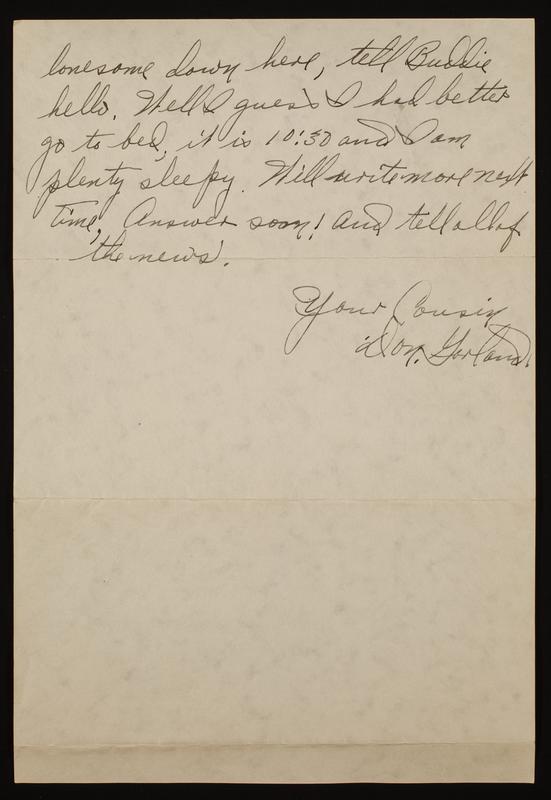 lonesome down here, tell Buddie
hello. Well I guess I had better
go to bed, it is 10:30 and I am
plenty sleepy. Will write more next
time, Answer soon! and tell all of
"the news".
Your Cousin
Don. Gorland.